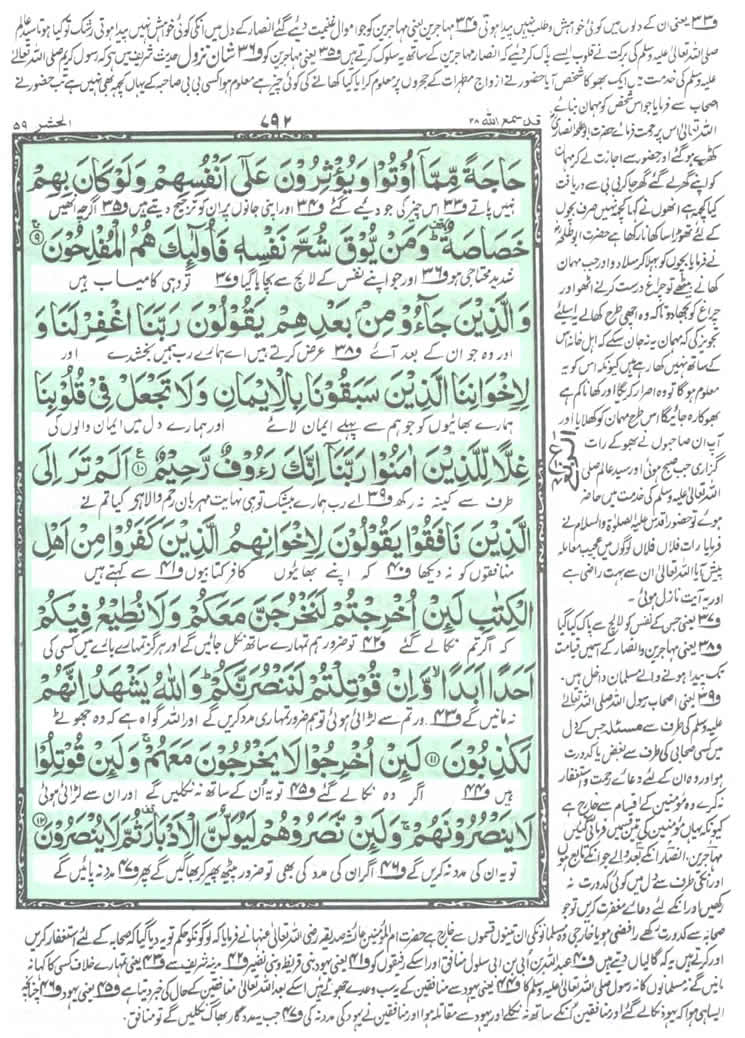 ف۳۳ یعنی ان کے دلوں میں کوئی خواہش و طلب نہیں پیدا ہوتی ف۳۴ مہاجرین یعنی مہاجرین کو جو اموال غنیمت دیے گئے انصار کے دل میں انکی کوئی خواہش نہیں پیدا ہوتی رشک تو کیا ہوتا سید عالم
صلی اللہ تعالیٰ علیہ وسلم کی برکت نے قلوب ایسے پاک کر دیے کہ انصار مہاجرین کے ساتھ یہ سلوک کرتے ہیں ف۳۵ یعنی مہاجرین کو ف۳۶ شان نزول حدیث شریف میں ہے کہ رسول کریم صلی اللہ تعالیٰ
علیہ وسلم کی خدمت میں ایک بھوکا شخص آیا حضور نے ازواج مطہرات کے حجروں پر معلوم کرایا کیا کھانے کی کوئی چیز ہے معلوم ہوا کسی بی بی صاحبہ کے یہاں کچھ بھی نہیں ہے تب حضور نے
قد سمع اللہ ۲۸
۷۹۲
الحشر ۵۹
حَاجَةً مِّمَّآ اُوْتُوْا وَيُؤْثِرُوْنَ عَلٰٓى اَنْفُسِهِمْ وَلَوْ كَانَ بِهِمْ
نہیں پاتے ف۳۳ اس چیز کی جو دیے گئے ف۳۴ اور اپنی جانوں پر ان کو ترجیح دیتے ہیں ف۳۵ اگرچہ انھیں
خَصَاصَةٌ ؕ وَمَنْ يُّوْقَ شُحَّ نَفْسِهٖ فَاُولٰٓئِكَ هُمُ الْمُفْلِحُوْنَ ۹
شدید محتاجی ہو ف۳۶ اور جو اپنے نفس کے لالچ سے بچایا گیا ف۳۷ تو وہی کامیاب ہیں
وَالَّذِيْنَ جَآءُوْ مِنْۢ بَعْدِهِمْ يَقُوْلُوْنَ رَبَّنَا اغْفِرْ لَنَا وَ
اور وہ جو ان کے بعد آئے ف۳۸ عرض کرتے ہیں اے ہمارے رب ہمیں بخشدے اور
لِاِخْوَانِنَا الَّذِيْنَ سَبَقُوْنَا بِالْاِيْمَانِ وَلَا تَجْعَلْ فِيْ قُلُوْبِنَا
ہمارے بھائیوں کو جو ہم سے پہلے ایمان لائے اور ہمارے دل میں ایمان والوں کی
غِلًّا لِّلَّذِيْنَ اٰمَنُوْا رَبَّنَآ اِنَّكَ رَءُوْفٌ رَّحِيْمٌ ۱۰ اَلَمْ تَرَ اِلَى
طرف سے کینہ نہ رکھ ف۳۹ اے رب ہمارے بیشک تو ہی نہایت مہربان رحم والا ہے کیا تم نے
الَّذِيْنَ نَافَقُوْا يَقُوْلُوْنَ لِاِخْوَانِهِمُ الَّذِيْنَ كَفَرُوْا مِنْ اَهْلِ
منافقوں کو نہ دیکھا ف۴۰ کہ اپنے بھائیوں کافر کتابیوں ف۴۱ سے کہتے ہیں
الْكِتٰبِ لَئِنْ اُخْرِجْتُمْ لَنَخْرُجَنَّ مَعَكُمْ وَلَا نُطِيْعُ فِيْكُمْ
کہ اگر تم نکالے گئے ف۴۲ تو ضرور ہم تمہارے ساتھ نکل جائیں گے اور ہرگز تمہارے بارے میں کسی کی
اَحَدًا اَبَدًا ۙ وَّاِنْ قُوْتِلْتُمْ لَنَنْصُرَنَّكُمْ ؕ وَاللّٰهُ يَشْهَدُ اِنَّهُمْ
نہ مانیں گے ف۴۳ اور تم سے لڑائی ہوئی تو ہم ضرور تمہاری مدد کریں گے اور اللہ گواہ ہے کہ وہ جھوٹے
لَكٰذِبُوْنَ ۱۱ لَئِنْ اُخْرِجُوْا لَا يَخْرُجُوْنَ مَعَهُمْ ۚ وَلَئِنْ قُوْتِلُوْا
ہیں ف۴۴ اگر وہ نکالے گئے ف۴۵ تو یہ ان کے ساتھ نہ نکلیں گے اور ان سے لڑائی ہوئی
لَا يَنْصُرُوْنَهُمْ ۚ وَلَئِنْ نَّصَرُوْهُمْ لَيُوَلُّنَّ الْاَدْبَارَ ثُمَّ لَا يُنْصَرُوْنَ ۱۲
تو یہ ان کی مدد نہ کریں گے ف۴۶ اگر ان کی مدد کی بھی تو ضرور پیٹھ پھیر کر بھاگیں گے پھر ف۴۷ مدد نہ پائیں گے
اصحاب سے فرمایا جو اس شخص کو مہمان بنائے
اللہ تعالیٰ اس پر رحمت فرمائے حضرت ابو طلحہ انصاری
کھڑے ہو گئے اور حضور سے اجازت لے کر مہمان
کو اپنے گھر لے گئے گھر جا کر بی بی سے دریافت
کیا کچھ ہے انھوں نے کہا کچھ نہیں صرف بچوں
کے لئے تھوڑا سا کھانا رکھا ہے حضرت ابو طلحہ
نے فرمایا بچوں کو بہلا کر سلا دو اور جب مہمان
کھانے بیٹھے تو چراغ درست کرنے اٹھو اور
چراغ کو بجھا دو تاکہ وہ اچھی طرح کھا لے یہ اسلئے
تجویز کی کہ مہمان یہ نہ جان سکے کہ اہل خانہ اس
کے ساتھ نہیں کھا رہے ہیں کیونکہ اس کو یہ
معلوم ہو گا تو وہ اصرار کریگا اور کھانا کم ہے
بھوکا رہ جائیگا اس طرح مہمان کو کھلایا اور
آپ ان صاحبوں نے بھوکے رات
گزاری جب صبح ہوئی اور سید عالم صلی
اللہ تعالیٰ علیہ وسلم کی خدمت میں حاضر
ہوئے تو حضور اقدس علیہ الصلوٰۃ والسلام نے
فرمایا رات فلاں فلاں لوگوں میں عجیب معاملہ
پیش آیا اللہ تعالیٰ ان سے بہت راضی ہے
اور یہ آیت نازل ہوئی۔
ف۳۷ یعنی جس کے نفس کو لالچ سے پاک کیا گیا
ف۳۸ یعنی مہاجرین و انصار کے اس میں قیامت
تک پیدا ہونے والے مسلمان داخل ہیں۔
ف۳۹ یعنی اصحاب رسول اللہ صلی اللہ تعالیٰ
علیہ وسلم کی طرف سے مسئلہ جس کے دل
میں کسی صحابی کی طرف سے بغض یا کدورت
ہو اور وہ ان کے لئے دعائے رحمت و استغفار
نہ کرے وہ مؤمنین کے اقسام سے خارج ہے
کیونکہ یہاں مؤمنین کی تین قسمیں فرمائی گئیں
مہاجرین، انصار انکے بعد والے جو انکے تابع ہوں
اور انکی طرف سے دل میں کوئی کدورت نہ
رکھیں اور انکے لئے دعائے مغفرت کریں تو جو
صحابہ سے کدورت رکھے رافضی ہو یا خارجی وہ مسلمانوں کی ان تینوں قسموں سے خارج ہے حضرت ام المؤمنین عائشہ صدیقہ رضی اللہ تعالیٰ عنہا نے فرمایا کہ لوگوں کو حکم تو یہ دیا گیا کہ صحابہ کے لئے استغفار کریں
اور کرتے ہیں یہ کہ گالیاں دیتے ہیں ف۴۰ عبداللہ بن ابی بن سلول منافق اور اسکے رفیقوں کو ف۴۱ یعنی یہود بنی قریظہ و بنی نضیر ف۴۲ مدینہ شریف سے ف۴۳ یعنی تمہارے خلاف کسی کا کہا نہ
مانیں گے نہ مسلمانوں کا نہ رسول صلی اللہ تعالیٰ علیہ وسلم کا ف۴۴ یعنی یہود سے منافقین کے یہ سب وعدے جھوٹے ہیں اسکے بعد اللہ تعالیٰ منافقین کے حال کی خبر دیتا ہے ف۴۵ یعنی یہود ف۴۶ چنانچہ
ایسا ہی ہوا کہ یہود نکالے گئے اور منافقین انکے ساتھ نہ نکلے اور یہود سے مقاتلہ ہوا اور منافقین نے یہود کی مدد نہ کی ف۴۷ جب یہ مددگار بھاگ نکلیں گے تو منافق۔